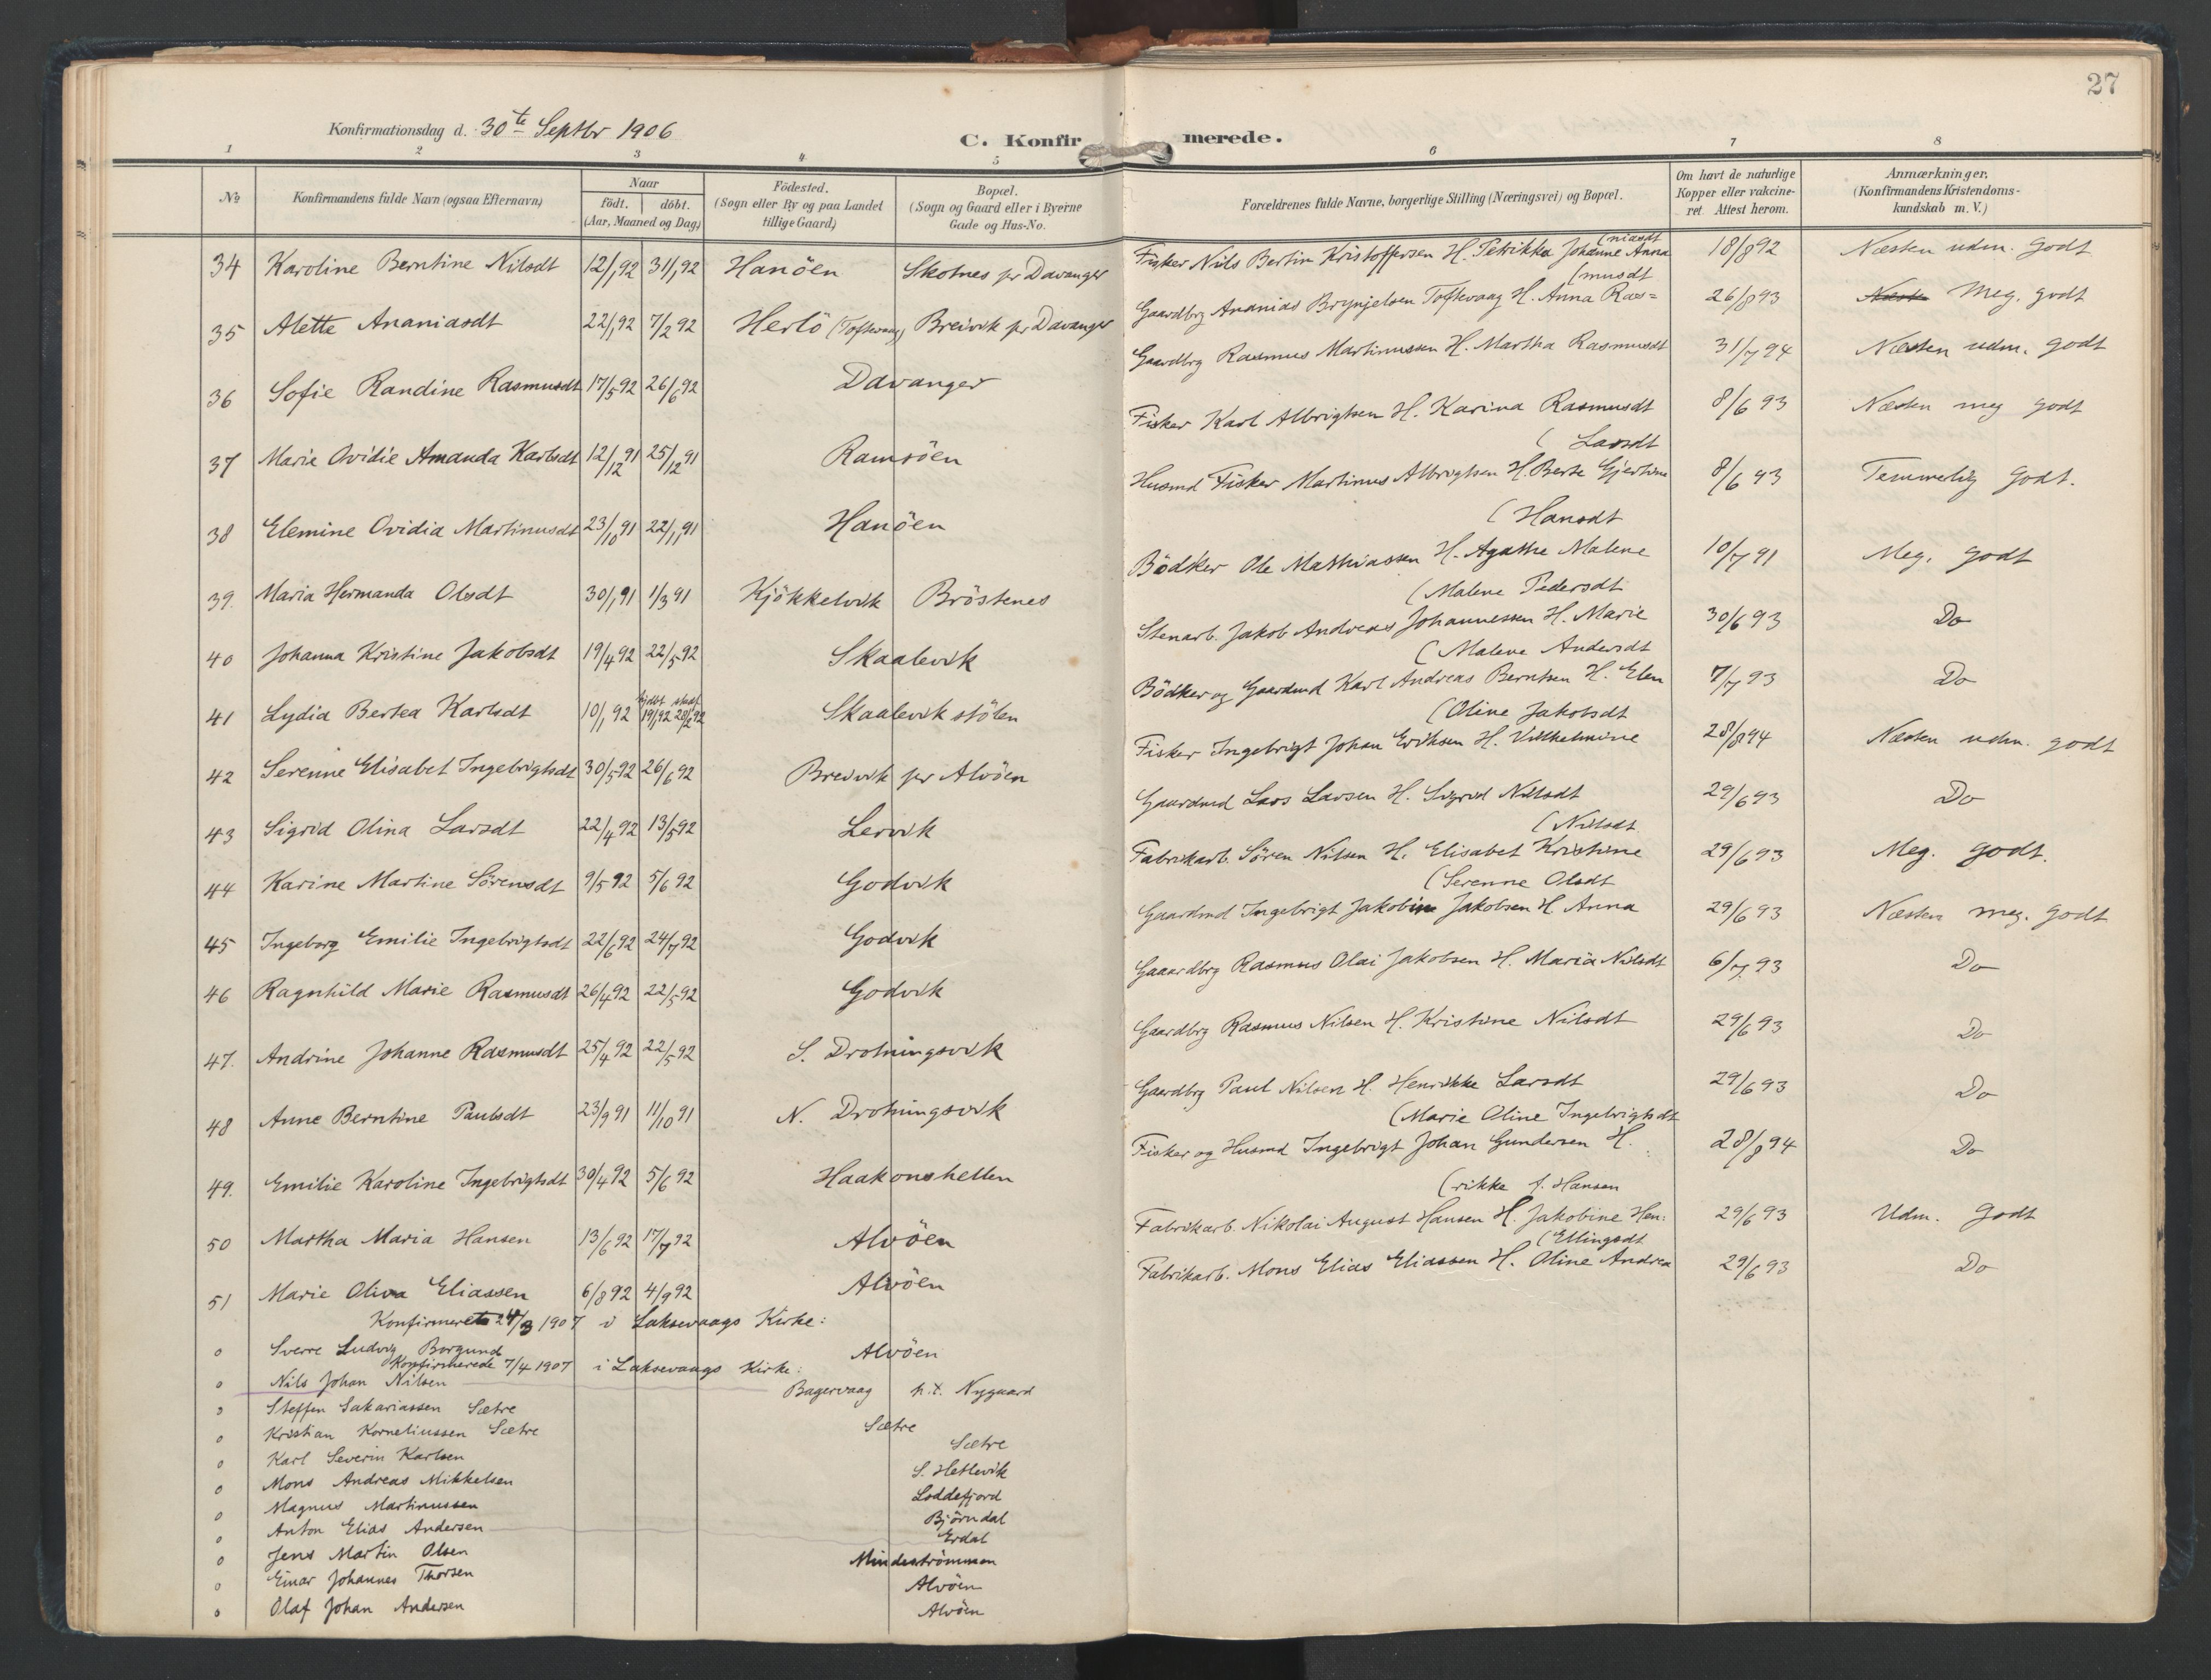 27
Konfirmationsdag d. 30te Septbr 1906
C. Konfirmerede.
1 2 3 4 5 6 7 8
No
Konfirmandens fulde Navn (ogsaa Efternavn)
Naar
födt. döbt.
(Aar, Maaned og Dag)
Födested.
(Sogn eller By og paa Landet
tillige Gaard)
Bopæl.
(Sogn og Gaard eller i Byerne
Gade og Hus-No.
Forældrenes fulde Navne, borgerlige Stilling (Næringsvei) og Bopæl.
Om havt de naturlige
Kopper eller vakcine-
ret. Attest herom.
Anmærkninger.
(Konfirmandens Kristendoms-
kundskab m. V.)
34 Karoline Berntine Nilsdt 12/1 92 31/1 92 Hanöen Skolnes pr Davanger Fisker Nils Bertin Kristoffersen H. Petrikka Johanne Anna (niasdt 18/8 92 Næsten udm. godt
35 Alette Ananiasdt 22/1 92 7/2 92 Herlö (Toftevaag) Breivik pr Davanger Gaardbrg Ananias Brynjelsen Toftevaag H. Anna Ras= (musdt 26/8 93 Meg. godt
36 Sofie Randine Rasmusdt 17/5 92 26/6 92 Davanger Gaardbrg Rasmus Martinussen H. Martha Rasmusdt 31/7 94 Næsten udm. godt
37 Marie Ovidie Amanda Karlsdt 12/12 91 25/12 91 Ramsöen Fisker Karl Albrigtsen H. Karina Rasmusdt 8/6 93 Næsten meg godt
38 Elemine Ovidia Martinusdt 23/10 91 22/11 91 Hanöen Husmd Fisker Martinus Albrigtsen H. Berte Gjertine (Larsdt 8/6 93 Temmelig godt.
39. Maria Hermanda Olsdt 30/1 91 1/3 91 Kjökkelvik Bröstenes Bödker Ole Mathiassen H. Agathe Malene (Hansdt 10/7 91 Meg. godt
40 Johanna Kristine Jakobsdt 19/4 92 22/5 92 Skaalevik Stenarb. Jakob Andreas Johannessen H. Marie (Malene Pedersdt 30/6 93 Do
41 Lydia Bertea Karlsdt 10/1 92 hjdbt 19/1 92 stadf 28/2 92 Skaalevikstölen Bödker og Gaardmd Karl Andreas Berntsen H. Elen (Malene Andersdt 7/7 93 Do
42 Serenne Elisabet Ingebrigtsdt 30/5 92 26/6 92 Breivik pr Alvöen Fisker Ingebrigt Johan Eriksen H. Vilhelmine (Oline Jakobsdt 28/8 94 Næsten udm. godt
43 Sigrid Olina Larsdt 22/4 92 13/5 92 Lervik Gaardmd Lars Larsen H. Sigrid Nilsdt 29/6 93 Do
44 Karine Martine Sörensdt 9/5 92 5/6 92 Godvik Fabrikarb. Sören Nilsen H. Elisabet Kristine (Nilsdt 29/6 93 Meg. godt.
45 Ingeborg Emilie Ingebrigtsdt 22/6 92 24/7 92 Godvik Gaardmd Ingebrigt Jakobine Jakobsen H. Anna (Serenne Olsdt 29/6 93 Næsten meg. godt
46 Ragnhild Marie Rasmusdt 26/4 92 22/5 92 Godvik Gaaardbrg Rasmus Olai Jakobsen H. Maria Nilsdt 6/7 93 Do
47. Andrine Johanne Rasmusdt 25/4 92 22/5 92 S. Drotningsvik Gaardbrg Rasmus Nilsen H. Kristine Nilsdt 29/6 93 Do
48 Anne Berntine Paulsdt 23/9 91 11/10 91 N. Drotningsvik Gaardbrg Paul Nilsen H. Henrikke Larsdt 29/6 93 Do
49. Emilie Karoline Ingebrigtsdt 30/4 92 5/6 92 Haakonshellen Fisker og Husmd Ingebrigt Johan Gundersen H. (Marie Oline Ingebrigtsdt 28/8 94 Do
50 Martha Maria Hansen 13/6 92 17/7 92 Alvöen Fabrikarb. Nikolai August Hansen H. Jakobine Hen: (rikke f. Hansen 29/6 93 Udm. godt
51 Marie Oliva Eliassen 6/8 92 4/9 92 Alvöen Fabrikarb. Mons Elias Eliassen H. Oline Andrea (Ellingsdt 29/6 93 Do
Konfirmerete 24/3 1907 i Laksevaags Kirke:
o Sverre Ludvig Borgund Alvöen
Konfirmerede 7/4 1907 i Laksevaags Kirke:
o Nils Johan Nilsen Bagervaag p.t. Nygaard
o Steffen Sakariassen Sætre Sætre
o Kristian Korneliussen Sætre Sætre
o Karl Severin Karlsen S. Hetlevik
o Mons Andreas Mikkelsen Loddefjord
o Magnus Martinussen Björndal
o Anton Elias Andersen Erdal
o Jens Martin Olsen Mindeströmmen
o Einar Johannes Thorsen Alvöen
o Olaf Johan Andersen Alvöen